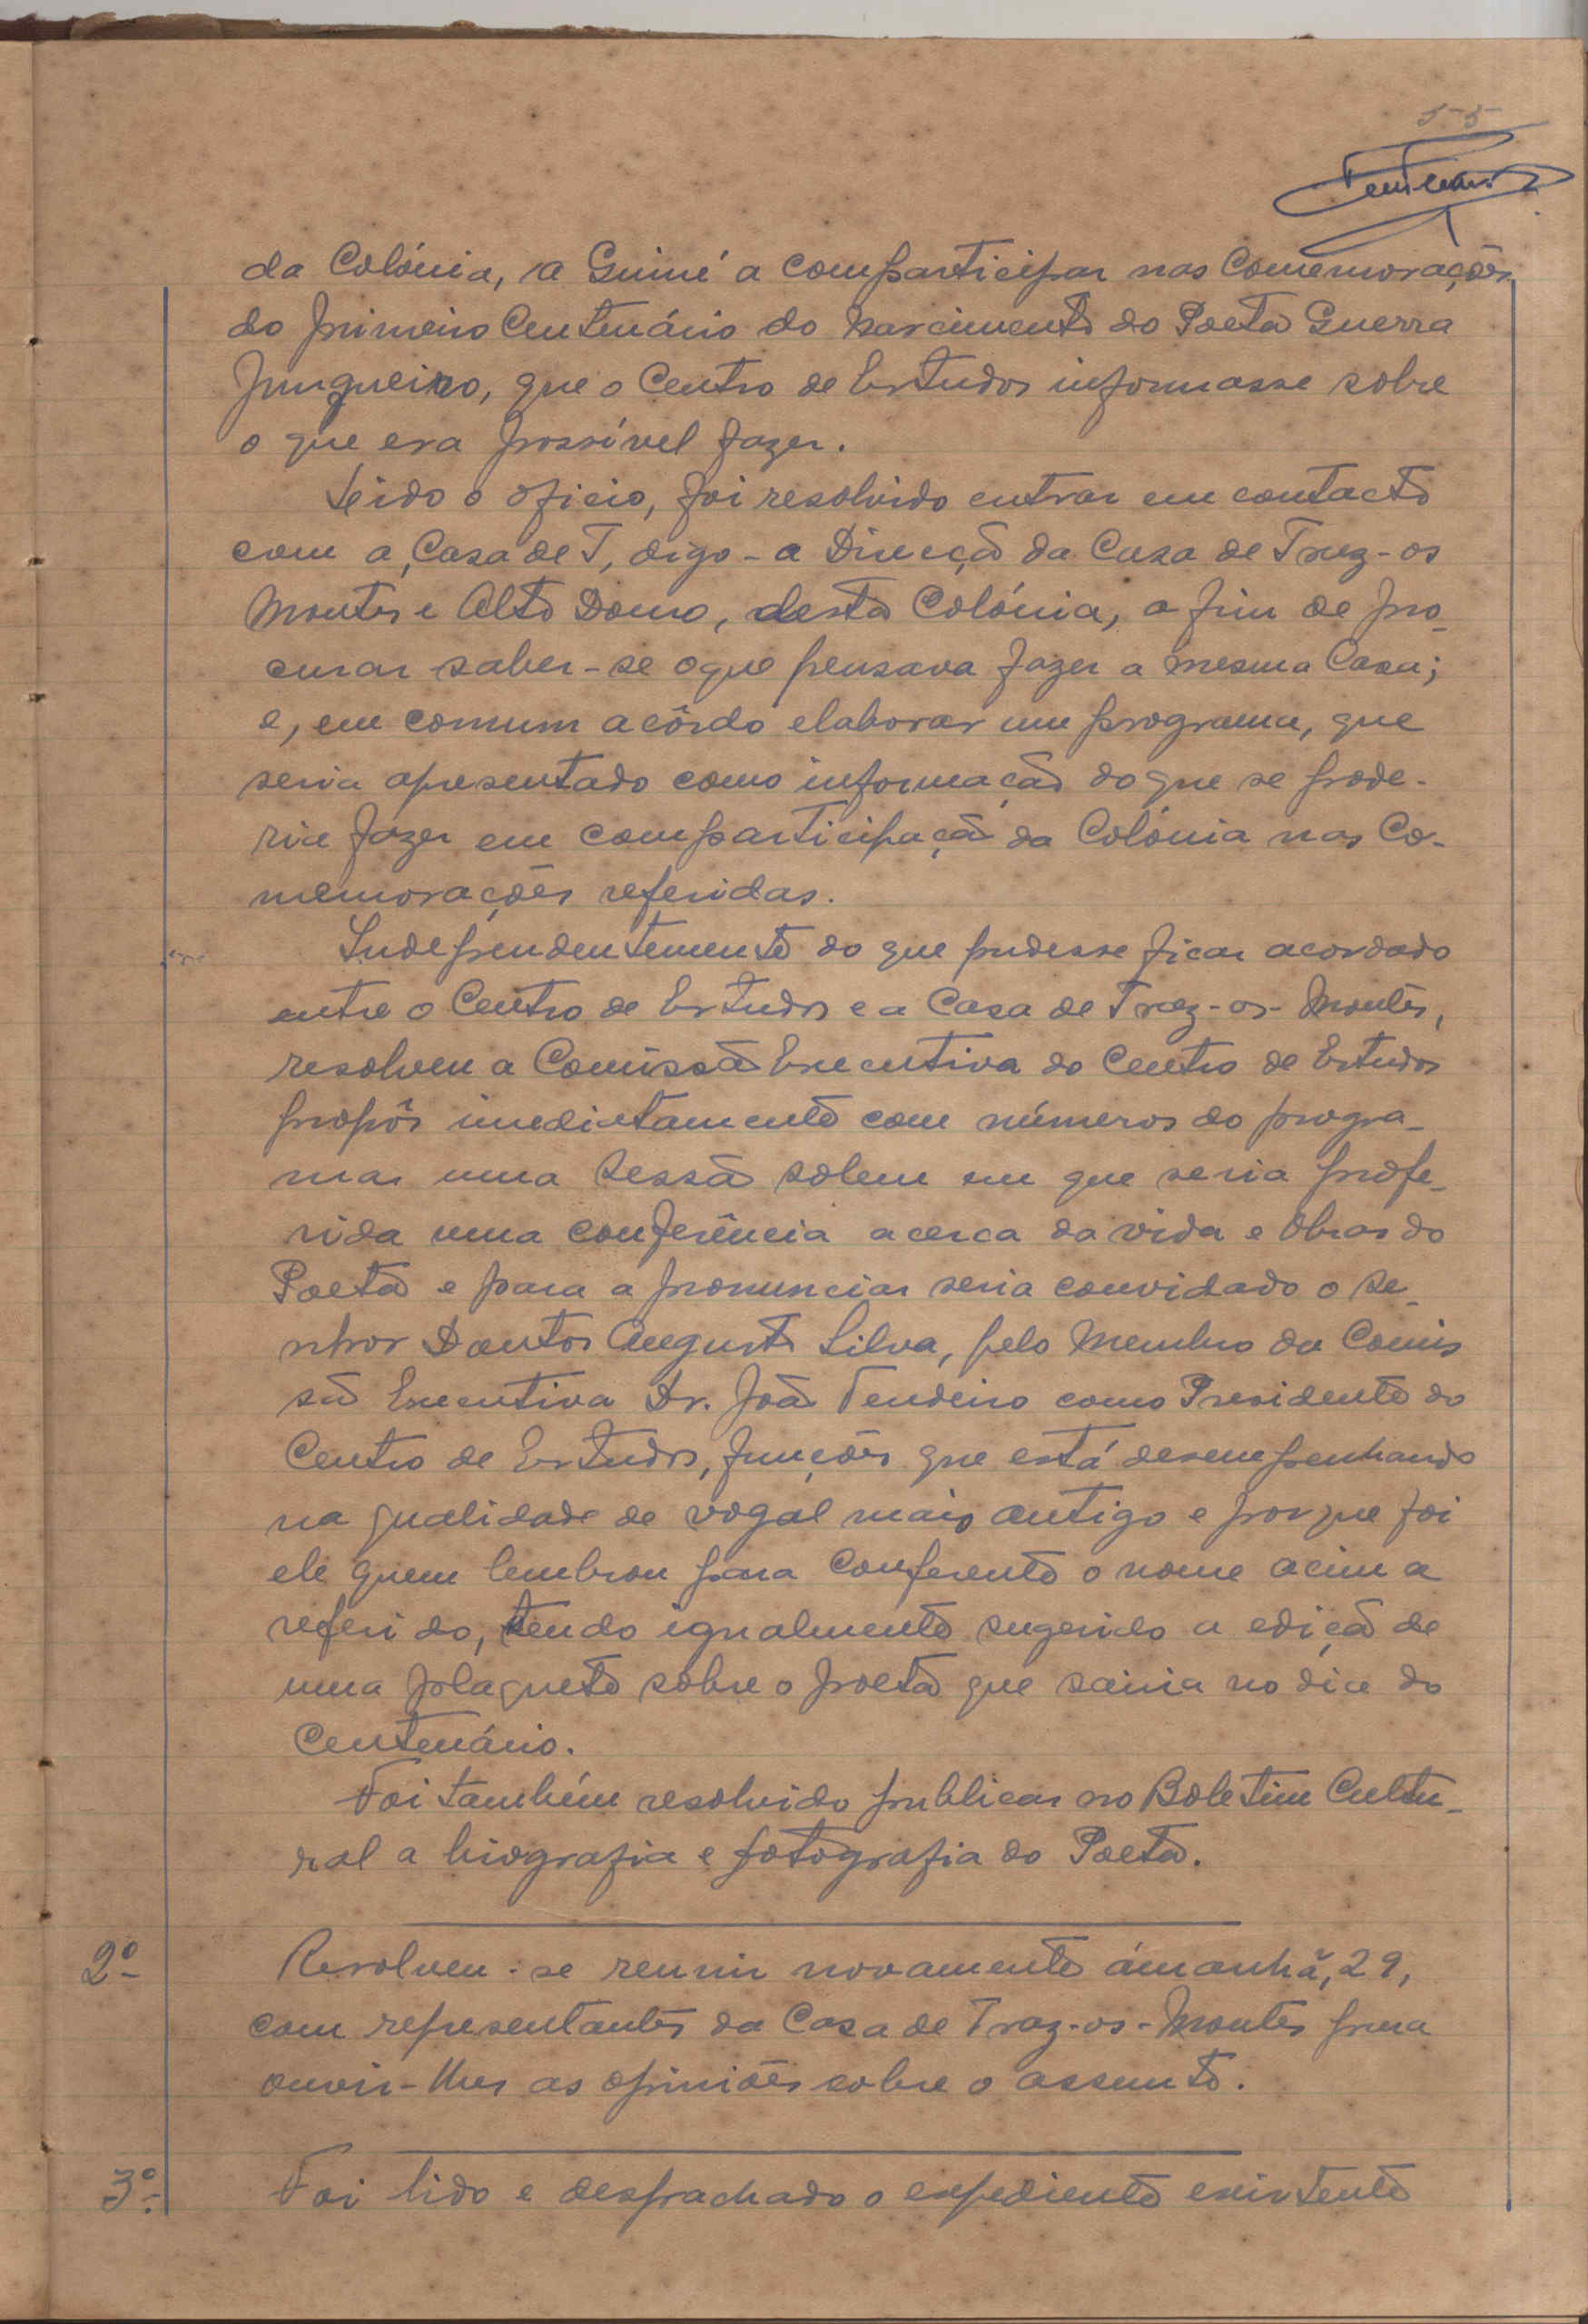 55
Tendeiro
da Colónia, a Guiné a comparticipar nas Comemorações
do primeiro Centenário do nascimento do Poeta Guerra
Junqueiro, que o Centro de Estudos informasse sobre
o que era possível fazer.
Leido o oficio, foi resolvido entrar em contacto
com a, Casa de T, digo - a Direcção da Casa de Traz-os
Montes e Alto Douro, desta Colónia, a fim de pro-
curar saber-se o que pensava fazer a mesma Casa;
e, em comum acôrdo elaborar um programa, que
seria apresentado como informação do que se pode-
ria fazer em comparticipação da Colónia nas Co-
memorações referidas.
Independentemente do que pudesse ficar acordado
entre o Centro de Estudos e a Casa de Traz-os-Montes,
resolveu a Comissão Executiva do Centro de Estudos
propôr imediatamente com números do progra-
mar uma sessão solem em que seria profe-
rida uma conferência acerca da vida e obras do
Poeta e para a pronunciar seria convidado o Se-
nhor Doutor Augusto Silva, pelo Membro da Comis
são Executiva Dr. João Tendeiro como Presidente do
Centro de Estudos, funções que está desempenhando
na qualidade de vogal mais antigo e porque foi
ele quem lembrou para Conferente o nome acima
referido, tendo igualmente sugerido a edição de
uma plaquete sobre o poeta que sairia no dia do
Centenário.
Foi também resolvido publicar no Boletim Cultu-
ral a biografia e fotografia do Poeta.
2º Resolveu-se reunir novamente ámanhã, 29,
com representantes da Casa de Traz-os-Montes para
ouvir-lhes as opiniões sobre o assunto.
3º Foi lido e despachado o expediente existente